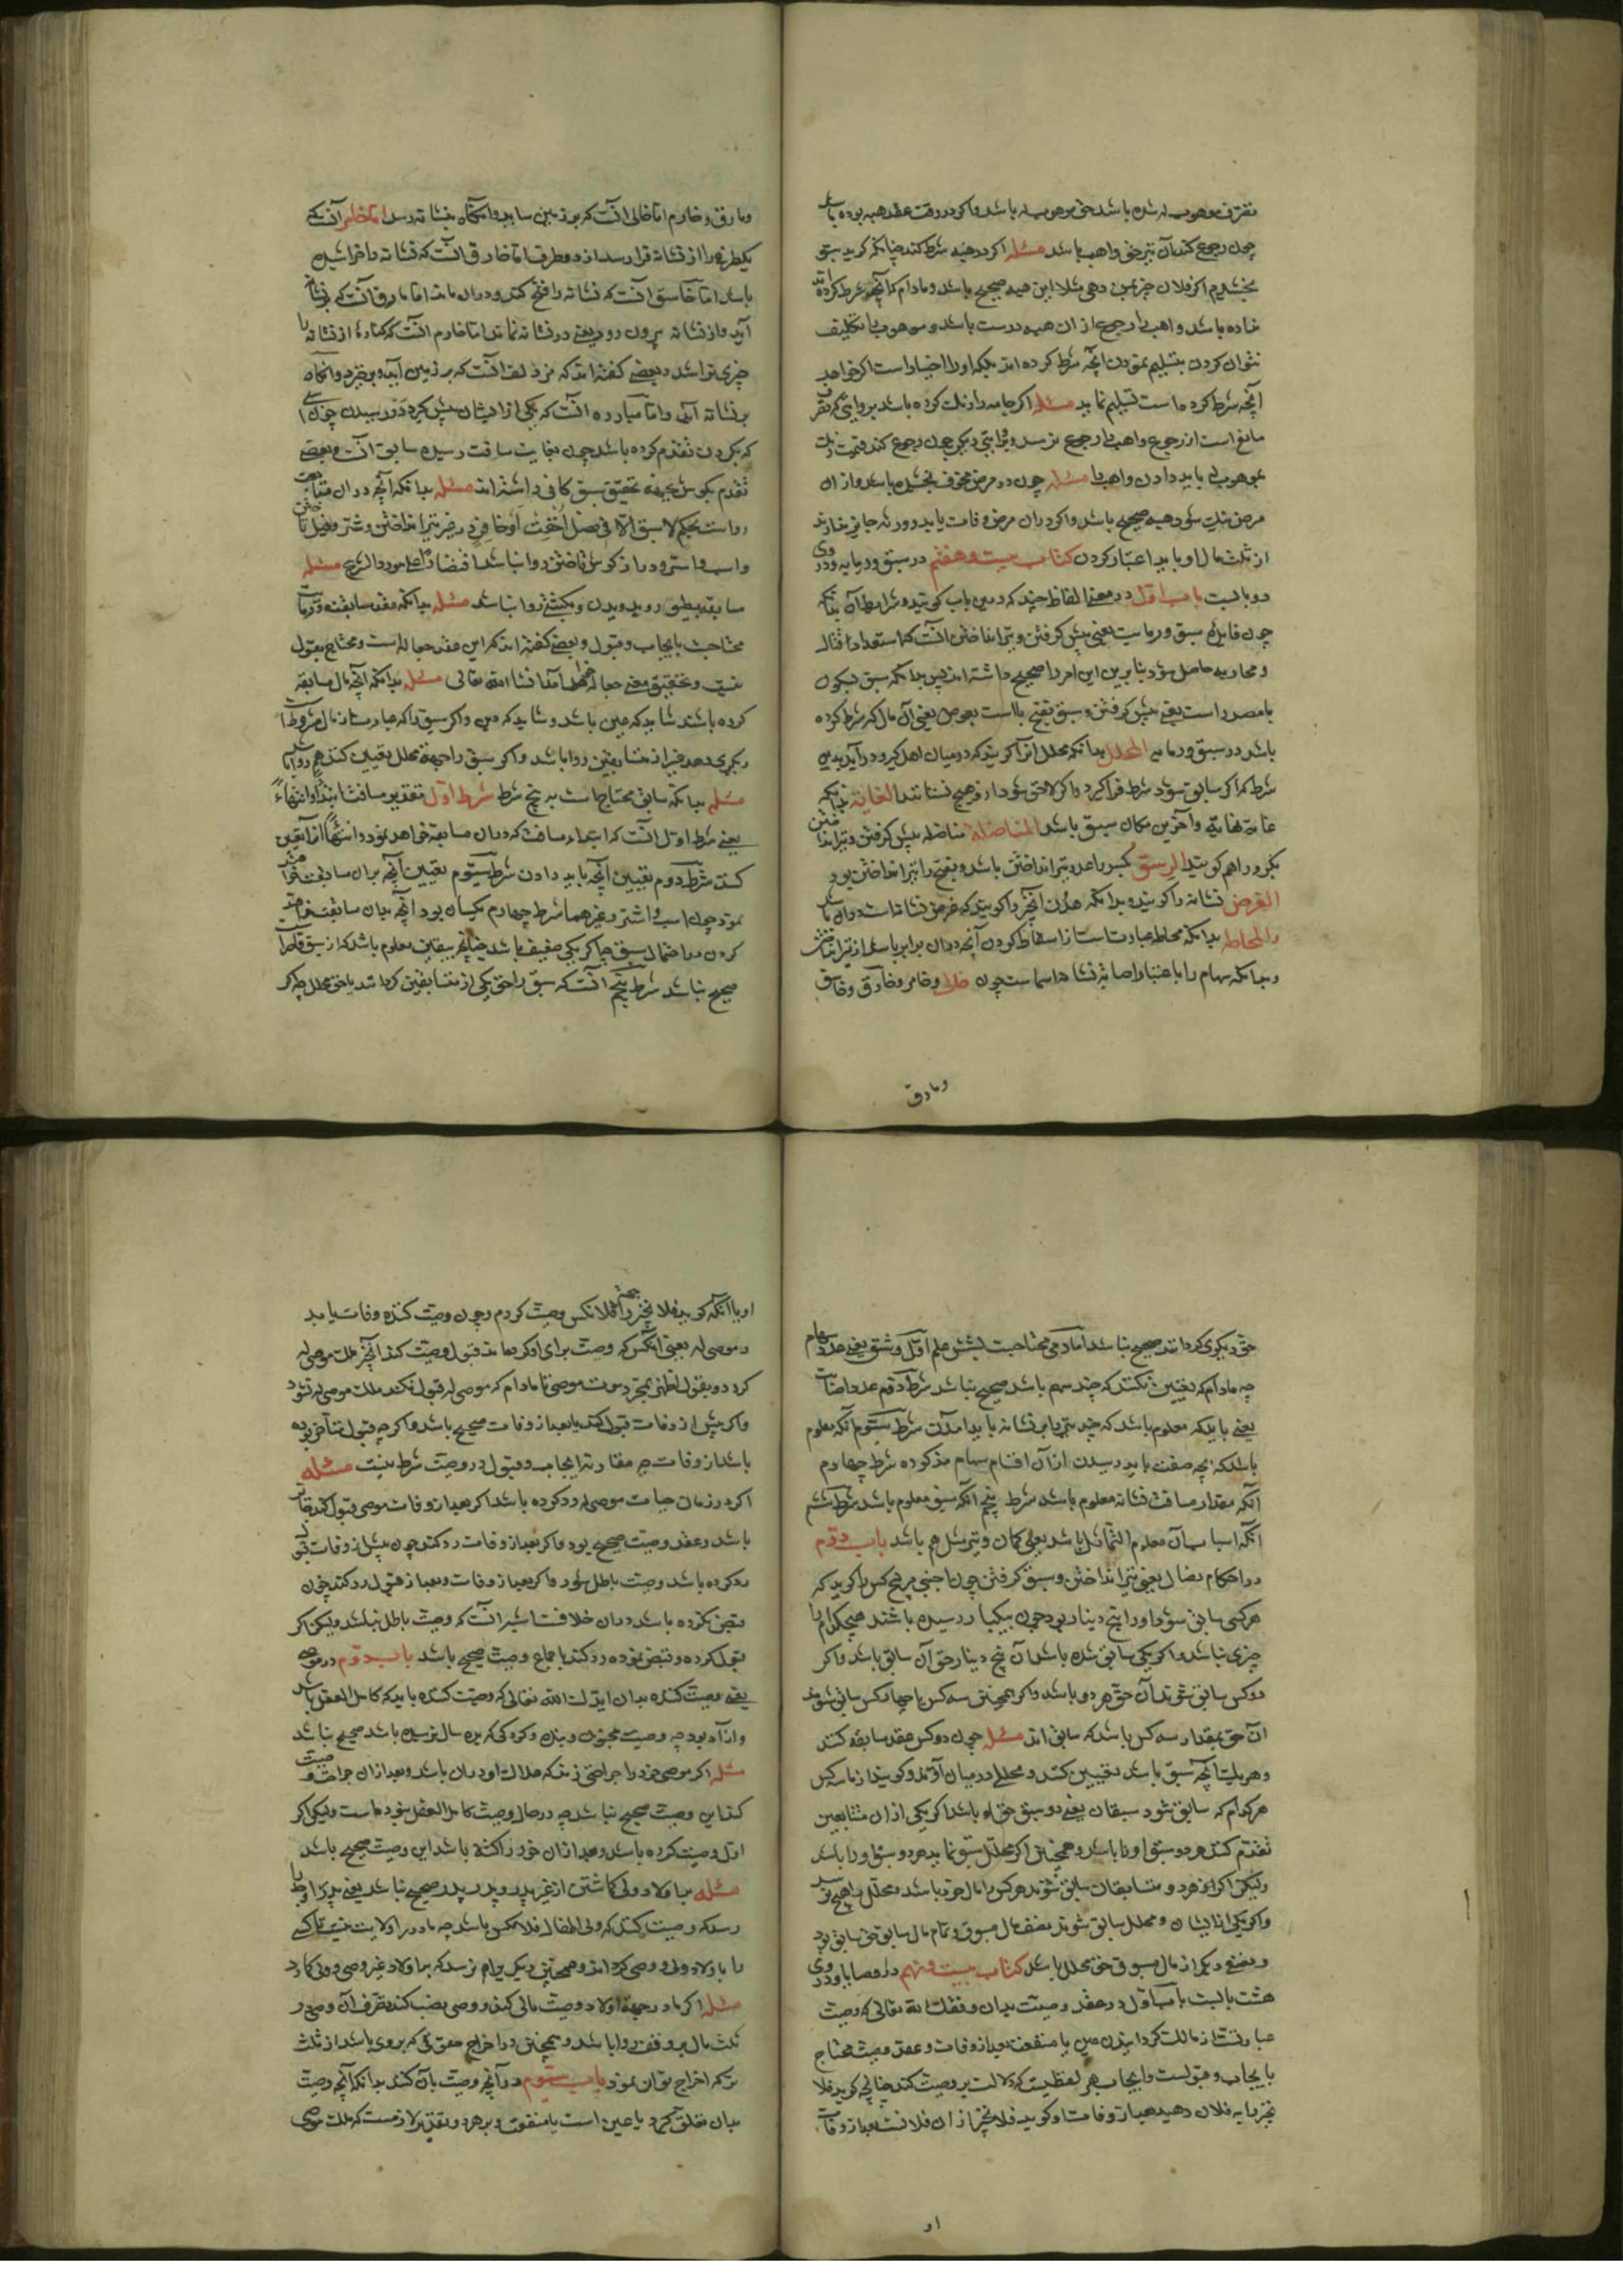 تصرف موهوب له شده باشد حق موهوب له باشد و اکر در وقت عقد هبه بوده باشد
چون رجوع کند آن نیز حق واهب باشد مسئله اکر در هبه شرط کند چنانکه کوید بتو
بخشیدم اکر فلان چیز بمن دهی مثلا این هبه صحیح باشد و مادام که آنچه شرط کرده اند
نداده باشد واهب را رجوع از ان هبه درست باشد و موهوب را تکلیف
نتوان کردن بتسلیم نمودن آنچه شرط کرده اند بلکه او را اختیار است اکر خواهد
آنچه شرط کرده است تسلیم نماید مسئله اکر جامه را رنک کرده باشد بر وایتی که تصرف
مانع است از رجوع واهب را رجوع نرسد و بروایتی دیکر چون رجوع کند قیمت رنک
بموهوب له باید دادن واهب را مسئله چون در مرض مخوف بخشیده باشد و از ان
مرض نیک شود هبه صحیح باشد و اکر در ان مرض وفات یابد و ورثه جایز ندارند
از ثلث مال او باید اعتبار کردن کتاب بیست و هفتم در سبق و رمایه و در وی
دو بابست باب اول در معنی الفاظ چند که درین باب کویند و شرایط آن بدانکه
چون فایده سبق و رمایت یعنی پیش کرفتن و تیر انداختن آنست که استعداد قتال
و محاربه حاصل شود بنابرین این امر را صحیح داشته اند پس بدانکه سبق بسکون
با مصدر است یعنی پیش کرفتن و سبق بفتح با است بعوض یعنی آن مال که شرط کرده
باشد در سبق و رمایه المحلل بدانکه محلل انرا کویند که در میان اهل کرو در آید بدین
شرط که اکر سابق شود شرط فرا کیرد و اکر لاحق شود از و هیچ نستانند الغایة بدانکه
غایة نهایة و آخرین مکان سبق باشد المناضلة مناضله پیش کرفتن و تیر انداختن
بکرو را هم کویند الرسق بکسر را عدد تیر انداختن باشد و بفتح را تیر انداختن بود
الغرض نشانه را کویند و بدانکه هدف آنچیز را کویند که غرض نشانه است در وان باشد
والمحاطه بدانکه محاطه عبارتست از اسقاط کردن آنچه در ان برابر باشد از تیر انداختن
و بدانکه سهام را باعتبار اصابه نشانه اسماست چون خابی و خاصر و خارق و خاسق
ومارق
ومارق و خارم اما خابی آنست که بر زمین ساید و انکاه بنشانه رسد اما خاصر آنست که
یکطرف را از نشانه قرا رسد از دو طرف اما خارق آنست که نشانه را خراشیده
باشد اما خاسق آنست که نشانه را فتح کند و در ان ماند اما مارق آنست که بر نشانه
آید و از نشانه بیرون رود یعنی در نشانه نماند اما خارم آنست که کناره از نشانه را
چیزی تراشد و بعضی کفته اند که مزدلف آنست که بر زمین آید و بر خیزد و انکاه
بر نشانه آید و اما مبادره آنست که یکی از ایشان پیش کیرد در رسیدن چون اسبی
که بکردن تقدم کرده باشد چون بغایت مسافت رسیده سابق آنست و بعضی
تقدم بکوش بجهة تحقیق سبق کافی داشته اند مسئله بدانکه آنچه در ان مسابقت
رواست بحکم لا سبق الا فی نصل او خف او حافر در غیر تیر انداختن و شتر و فیل تاختن
واسب و استر و دراز کوش تاختن روا نباشد اقتصارا علی مورد الشرع مسئله
مسابقه بطیور و بدویدن و بکشتی روا نباشد مسئله بدانکه عقد مسابقت و رمایت
محتاجست بایجاب و قبول و بعضی کفته اند که این عقد جعاله است و محتاج بقبول
نیست و تحقیق معنی جعاله خواهد آمد انشا الله تعالی مسئله بدانکه آنچه مال مسابقه
کرده باشند شاید که عین باشد و شاید که دین و اکر سبق را که عبارتست از مال مشروط است
دیکری دهد غیر از متسابقین روا باشد و اکر سبق را جهة محلل تعیین کنند هم روا باشد
مسئله بدانکه سابق محتاج است به پنج شرط شرط اول تقدیر مسافت ابتداء و انتهاء
یعنی شرط اول آنست که ابتداء مسافت که در ان مسابقه خواهد بود و انتهاء انرا تعیین
کنند شرط دوم تعیین آنچه باید دادن شرط سیوم تعیین آنچه بر ان مسابقت خواهند
نمود چون اسب و اشتر و غیرهما شرط چهارم یکسان بود آنچه بدان مسابقت خواهند
کردن در احتمال سبق چه اکر یکی ضعیف باشد چنانچه بیقین معلوم باشد که از سبق قاصر است
صحیح نباشد شرط پنجم آنست که سبق را حق یکی از متسابقین کردانند یا حق محلل چه اکر
حق دیکری کردانند صحیح نباشد اما رمی محتاجست بشش علم اول رشق یعنی عدد سهام
چه مادام که تعیین نکنند که چند سهم باشد صحیح نباشد شرط دوم عدد اصابت
یعنی باید که معلوم باشد که چند تیر برین نشانه باید آمدن شرط سیوم آنکه معلوم
باشد که بچه صفت باید رسیدن از آن اقسام سهام مذکوره شرط چهارم
آنکه مقدار مسافت نشانه معلوم باشد شرط پنجم آنکه سبق معلوم باشد شرط ششم
آنکه اسباب آن معلوم التماثل باشد یعنی کمان و تیر مثل هم باشد باب دوم
در احکام نضال یعنی تیر انداختن و سبق کرفتن چون اجنبی مر پنج کس را کوید که
هر کس سابق شود او را پنج دینار بود چون بیکبار رسیده باشند هیچکدام را
چیزی نباشد و اکر یکی سابق شده باشد آن پنج دینار حق آن سابق باشد و اکر
دو کس سابق شوند آن حق هر دو باشد و اکر همچنین سه کس یا چهار کس سابق شوند
ان حق بمقدار سه کس باشد که سابق اند مسئله چون دو کس عقد مسابقه کنند
و هر یک آنچه سبق باشد تعیین کنند و محللی در میان آورند و کویند از ما سه کس
هر کدام که سابق شود سبقان یعنی دو سبق حق او باشد اکر یکی از ان متسابقین
تقدم کند هر دو سبق او را باشد و همچنین اکر محلل سبق نماید هر دو سبق او را باشد
و لیکن اکر هر دو متسابقان سابق شوند هر کس را مال خود باشد و محلل را هیچ نرسد
و اکر یکی از ایشان و محلل سابق شوند نصف مال مسبوق و تمام مال سابق حق سابق بود
و نصفی دیکر از مال مسبوق حق محلل باشد کتاب بیست و نهم در وصایا و در وی
هشت بابست باب اول در عقد وصیت بدان وفقک الله تعالی که وصیت
عبارتست از مالک کردانیدن عین یا منفعت بعد از وفات و عقد وصیت محتاج
بایجاب و قبولست و ایجاب هر لفظیست که دلالت بر وصیت کند چنانچه کوید فلان
چیز را به فلان دهید بعد از وفات او کوید فلان چیز از ان فلانست بعد از وفات
او
او یا آنکه کوید فلان چیز را جهة فلانکس وصیت کردم و چون وصیت کننده وفات یابد
و موصی له یعنی آنکس که وصیت برای او کرده اند قبول وصیت کند آنچیز ملک موصی له
کردد و بقول اظهر بمجرد موت موصی تا مادام که موصی له قبول نکند ملک موصی له نشود
و اکر پیش از وفات قبول کند یا بعد از وفات صحیح باشد و اکر چه قبول متاخر بوده
باشد از وفات چه مقارنة ایجاب و قبول در وصیت شرط نیست مسئله
اکر در زمان حیات موصی له رد کرده باشد اکر بعد از وفات موصی قبول کند جائز
باشد و عقد وصیت صحیح بود و اکر بعد از وفات رد کند چون پیش از وفات نیز
رد کرده باشد وصیت باطل شود و اکر بعد از وفات و بعد از قبول رد کند چون
قبض نکرده باشد در ان خلافست اشهر آنست که وصیت باطل نباشد و لیکن اکر
قبول کرده و قبض نموده رد کند باجماع وصیت صحیح باشد باب دوم در موصی
یعنی وصیت کننده بدان ایدک الله تعالی که وصیت کننده باید که کامل العقل باشد
و آزاد بود چه وصیت مجنون و بنده و کودکی که بده سال نرسیده باشد صحیح نباشد
مسئله اکر موصی خود را جراحتی زند که هلاک او در ان باشد و بعد از ان جراحت وصیت
کند این وصیت صحیح نباشد چه در حال وصیت کامل العقل نبوده است و لیکن اکر
اول وصیت کرده باشد و بعد از ان خود را کشته باشد این وصیت صحیح باشد
مسئله بر اولاد ولی کماشتن از غیر پدر و پدر پدر صحیح نباشد یعنی پدر را و جد را
رسد که وصیت کند که ولی اطفال فلانکس باشد چه مادر را ولایت نیست تا کسی
را بر اولاد ولی و وصی کرداند و همچنین دیکر را هم نرسد که بر اولاد غیر وصی و ولی کمارد
مسئله اکر مادر جهة اولاد وصیت مالی کند و وصی نصب کند تصرف آن وصی در
ثلث مال بر وقف روا باشد و همچنین در اخراج حقوقی که بر وی باشد از ثلث
ترکه اخراج توان نمود باب سیوم در آنچه وصیت بآن کنند بدانکه آنچه وصیت
بدان تعلق کیرد یا عین است یا منفعت و بر هر دو تقدیر لازمست که ملک موصی